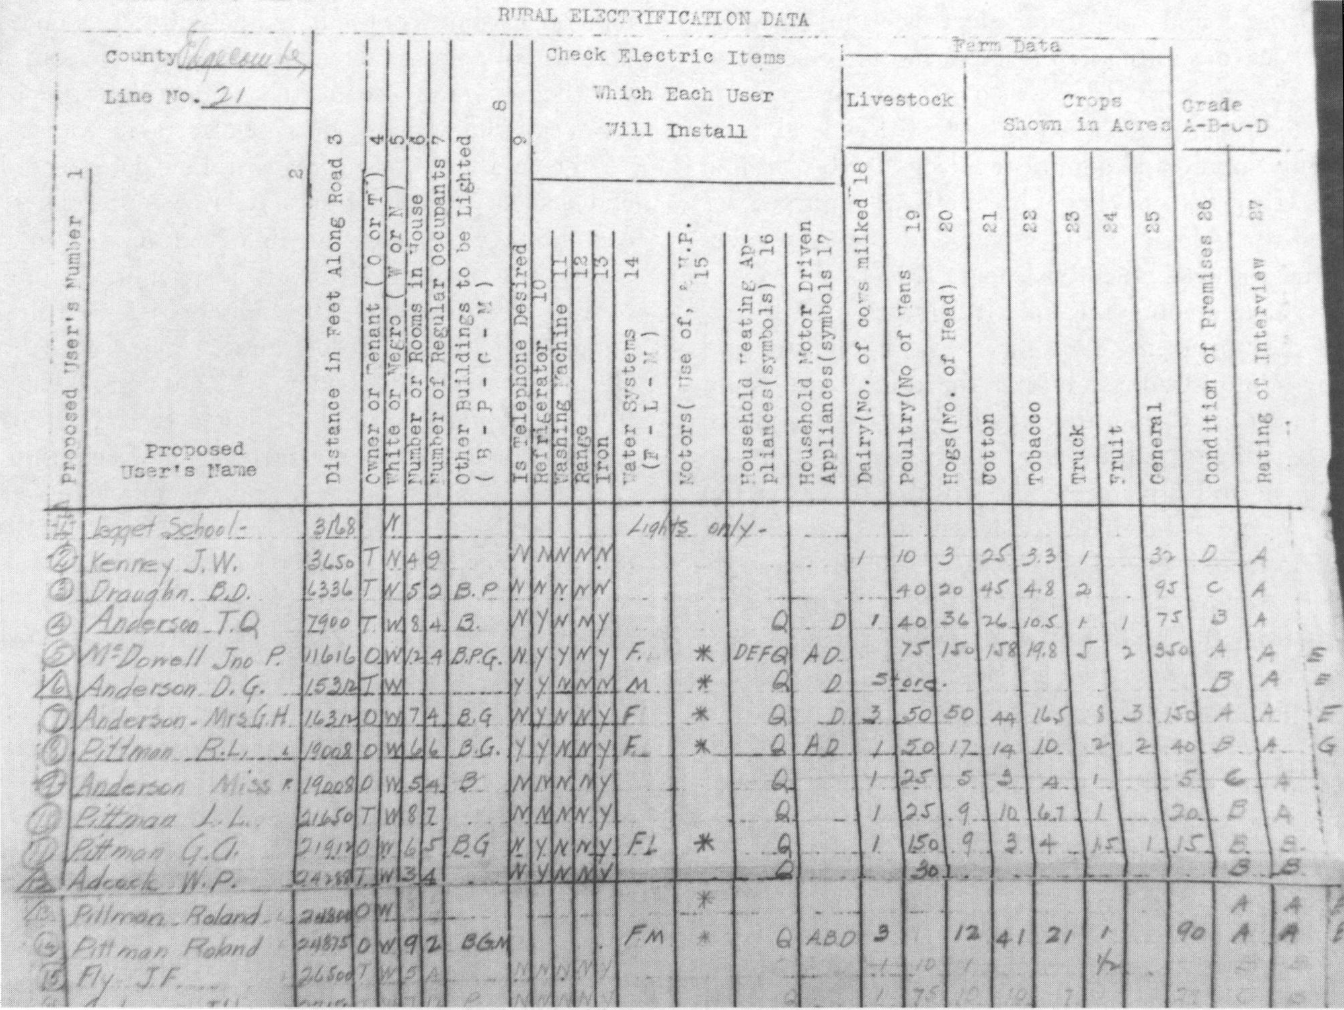 RURAL ELECTRIFICATION DATA
County Edgecombe
Line No. 21
Check Electric Items
Which Each User
Will Install
Farm Data
Livestock
Crops
Shown in Acres
Grade
A-B-C-D
Proposed User's Number 1
Proposed
User's Name
2
Distance in Feet Along Road 3
Owner or Tenant ( O or T ) 4
White or Negro ( W or N ) 5
Number or Rooms in House 6
Number of Regular Occupants 7
Other Buildings to be Lighted
( B - P - G - M ) 8
Is Telephone Desired 9
Refrigerator 10
Washing Machine 11
Range 12
Iron 13
Water Systems 14
(F - L - M )
Motors( Use of, & H.P. 15
Household Heating Ap-
pliances(symbols) 16
Household Motor Driven
Appliances(symbols 17
Dairy(No. of cows milked 18
Poultry(No of Hens 19
Hogs(No. of Head) 20
Cotton 21
Tobacco 22
Truck 23
Fruit 24
General 25
Condition of Premises 26
Rating of Interview 27
Legget School- 3168 N Lights only-
2 Kenney J.W. 3650 T N 4 9 N N N N N 1 10 3 25 3.3 1 32 D A
3 Draughn B.D. 6336 T N 5 2 B.P N N N N N 40 20 45 4.8 2 95 C A
4 Anderson T.Q 7900 T W 8 4 B. N Y N N Y Q D 1 40 36 26 10.5 1 1 75 B A
5 McDowell Jno P. 11616 O W 12 4 B.P.G. N Y Y N Y F. * DEFQ AD 75 150 158 19.8 5 2 350 A A E
6 Anderson D.G. 15312 T W Y Y N N N M * Q D Store. B A E
7 Anderson-Mrs G.H 16312 O W 7 4 B.G N Y N N Y F * Q D 3 50 50 44 16.5 8 3 150 A A E
8 Pittman R.L. 19008 O W 6 6 B.G. Y Y N N Y F. * Q AD 1 50 17 14 10. 2 2 40 B A G
9 Anderson Miss 19008 O W 5 4 B N N N N Y Q 1 25 5 3 4 1 5 C A
10 Pittman L.L. 21650 T W 8 7 N N N N Y Q 1 25 9 10 6.7 1 20 B A
11 Pittman G.A. 21912 O W 6 5 BG N Y N N Y FL * Q 1 150 9 3 4 1.5 1 15 B B
12 Adcock W.P. 24288 T W 3 4 N Y N N Y Q 30 B B
13 Pittman Roland O W * A A
14 Pittman Roland 24875 O W 9 2 BGM FM * Q A.B.D 3 12 41 21 1 90 A A
15 Fly J.F. 26500 T W 5 4 N N N N Y 1 10 1 1/2 B B